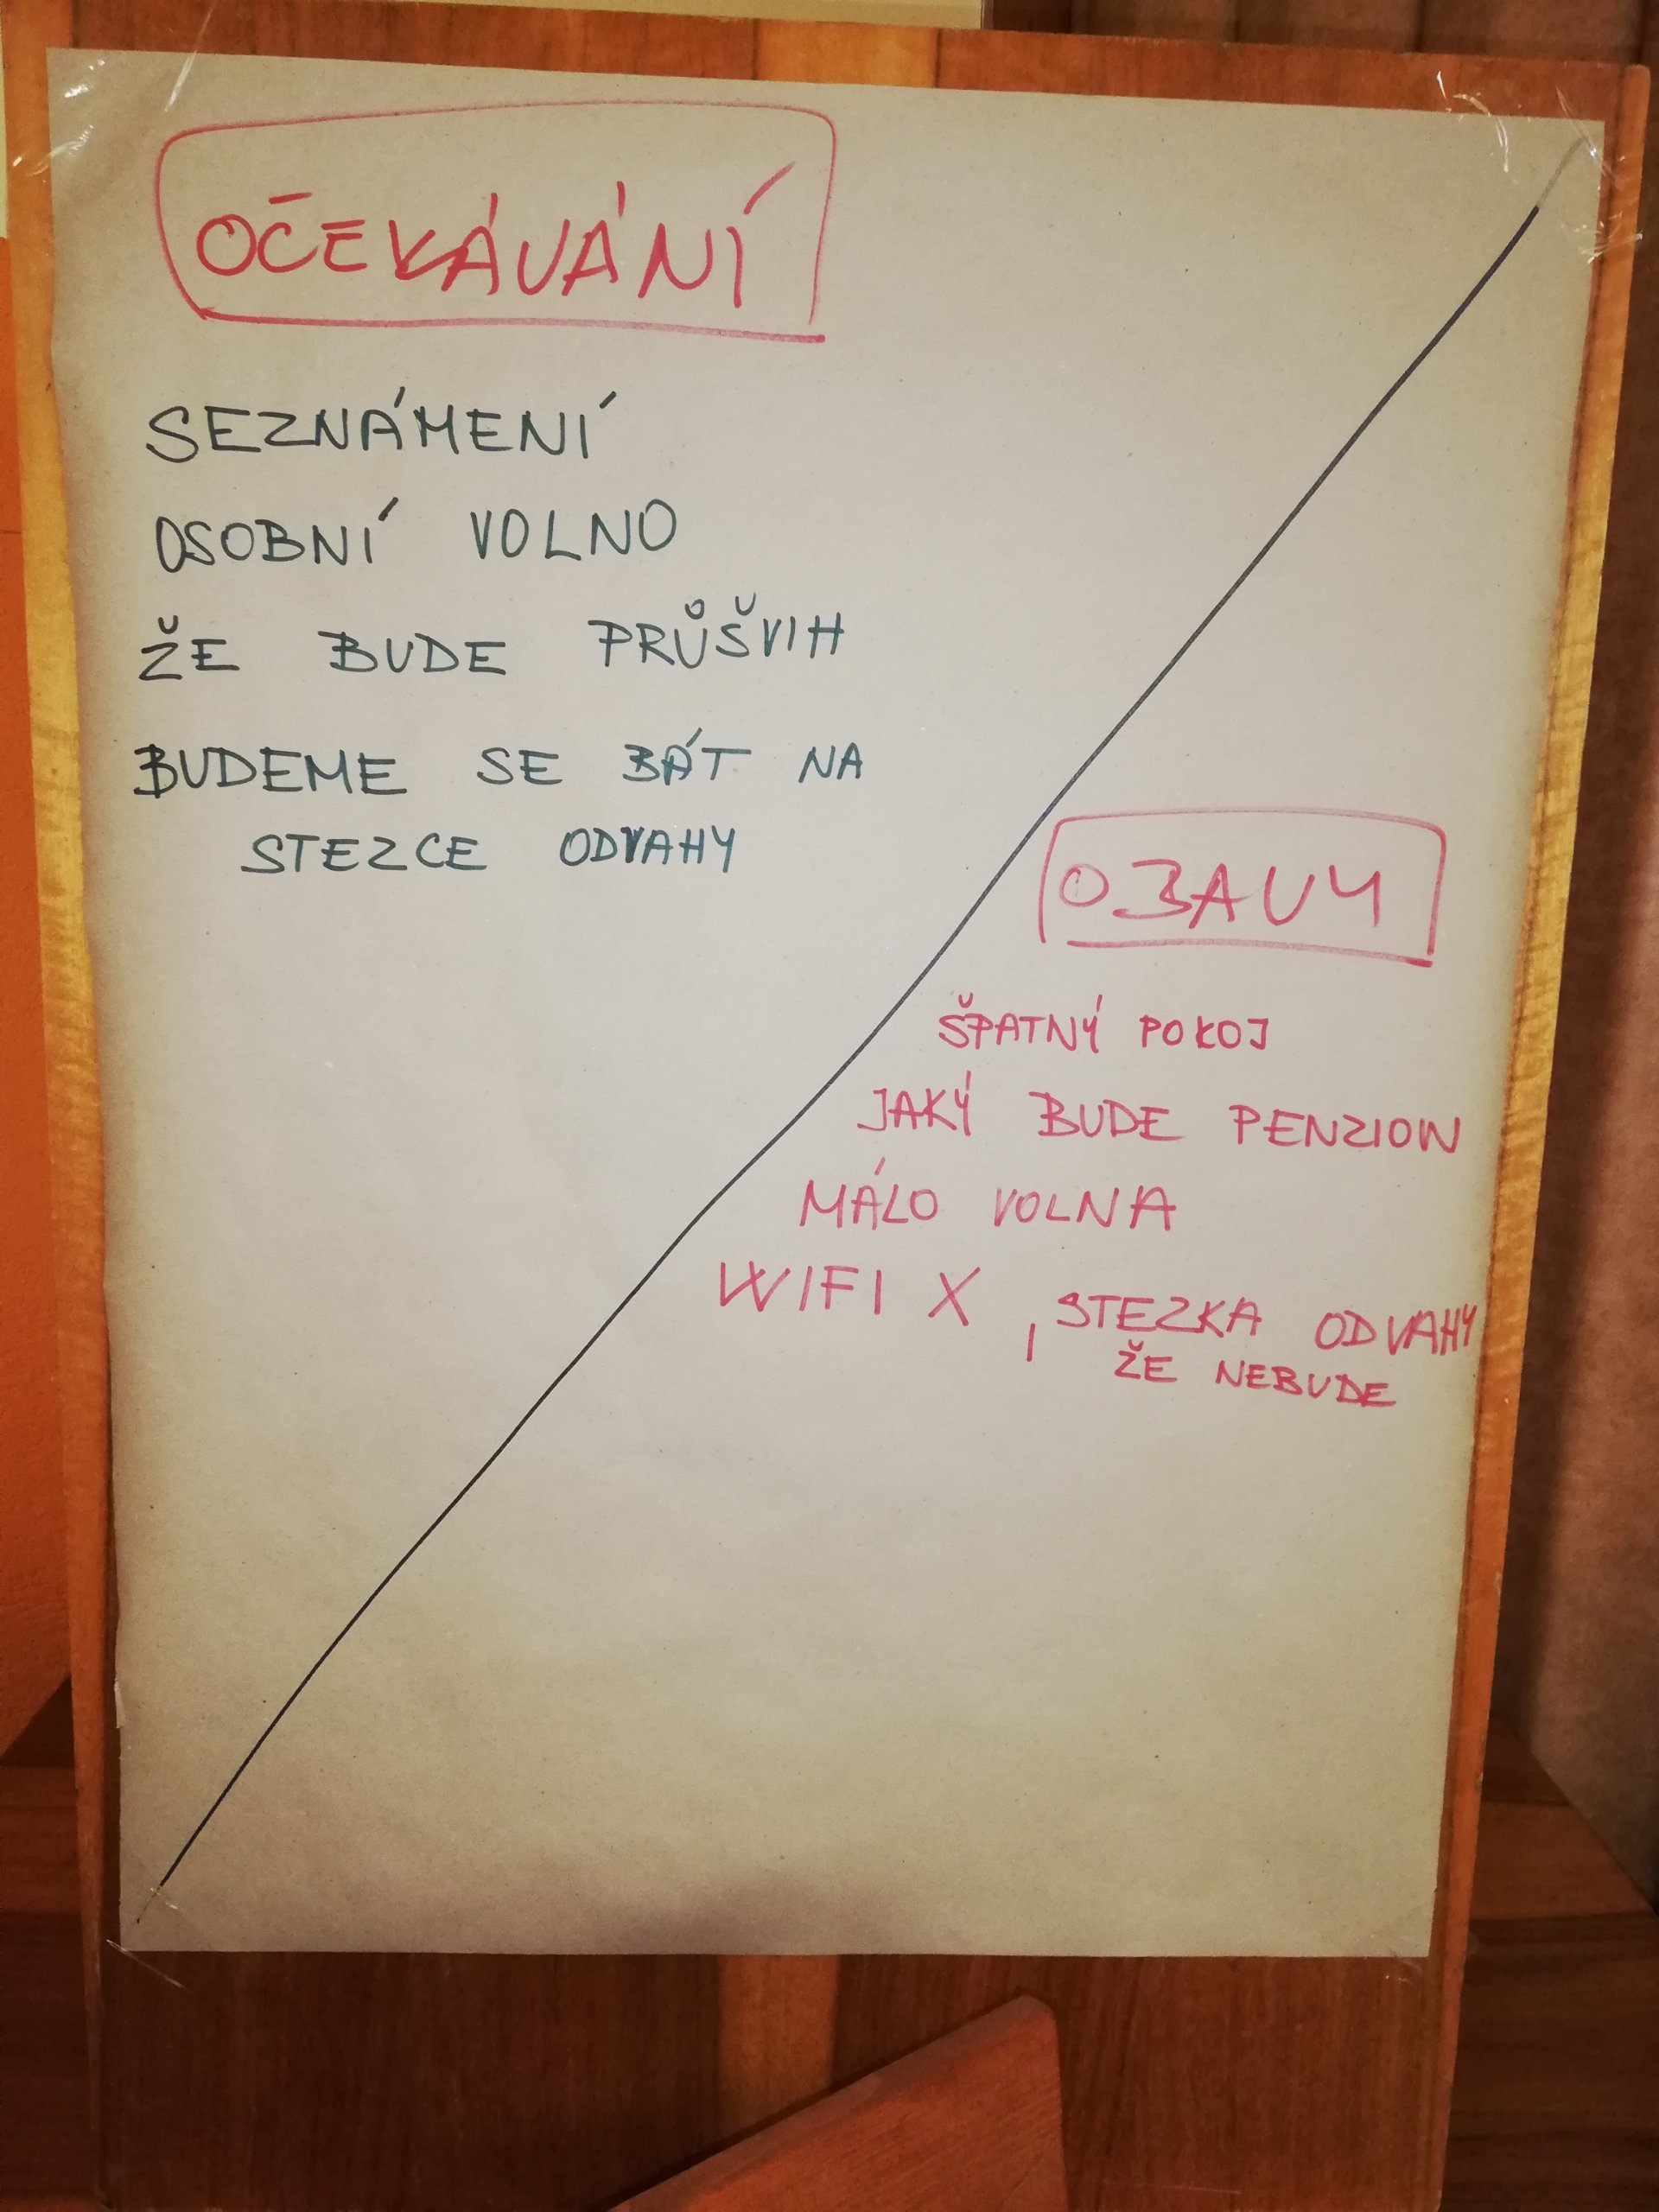 OČEKÁVÁNÍ
SEZNÁMENÍ
OSOBNÍ VOLNO
ŽE BUDE PRŮŠVIH
BUDEME SE BÁT NA
STEZCE ODVAHY
OBAVY
ŠPATNÝ POKOJ
JAKÝ BUDE PENZION
MÁLO VOLNA
WIFI X , STEZKA ODVAHY
ŽE NEBUDE